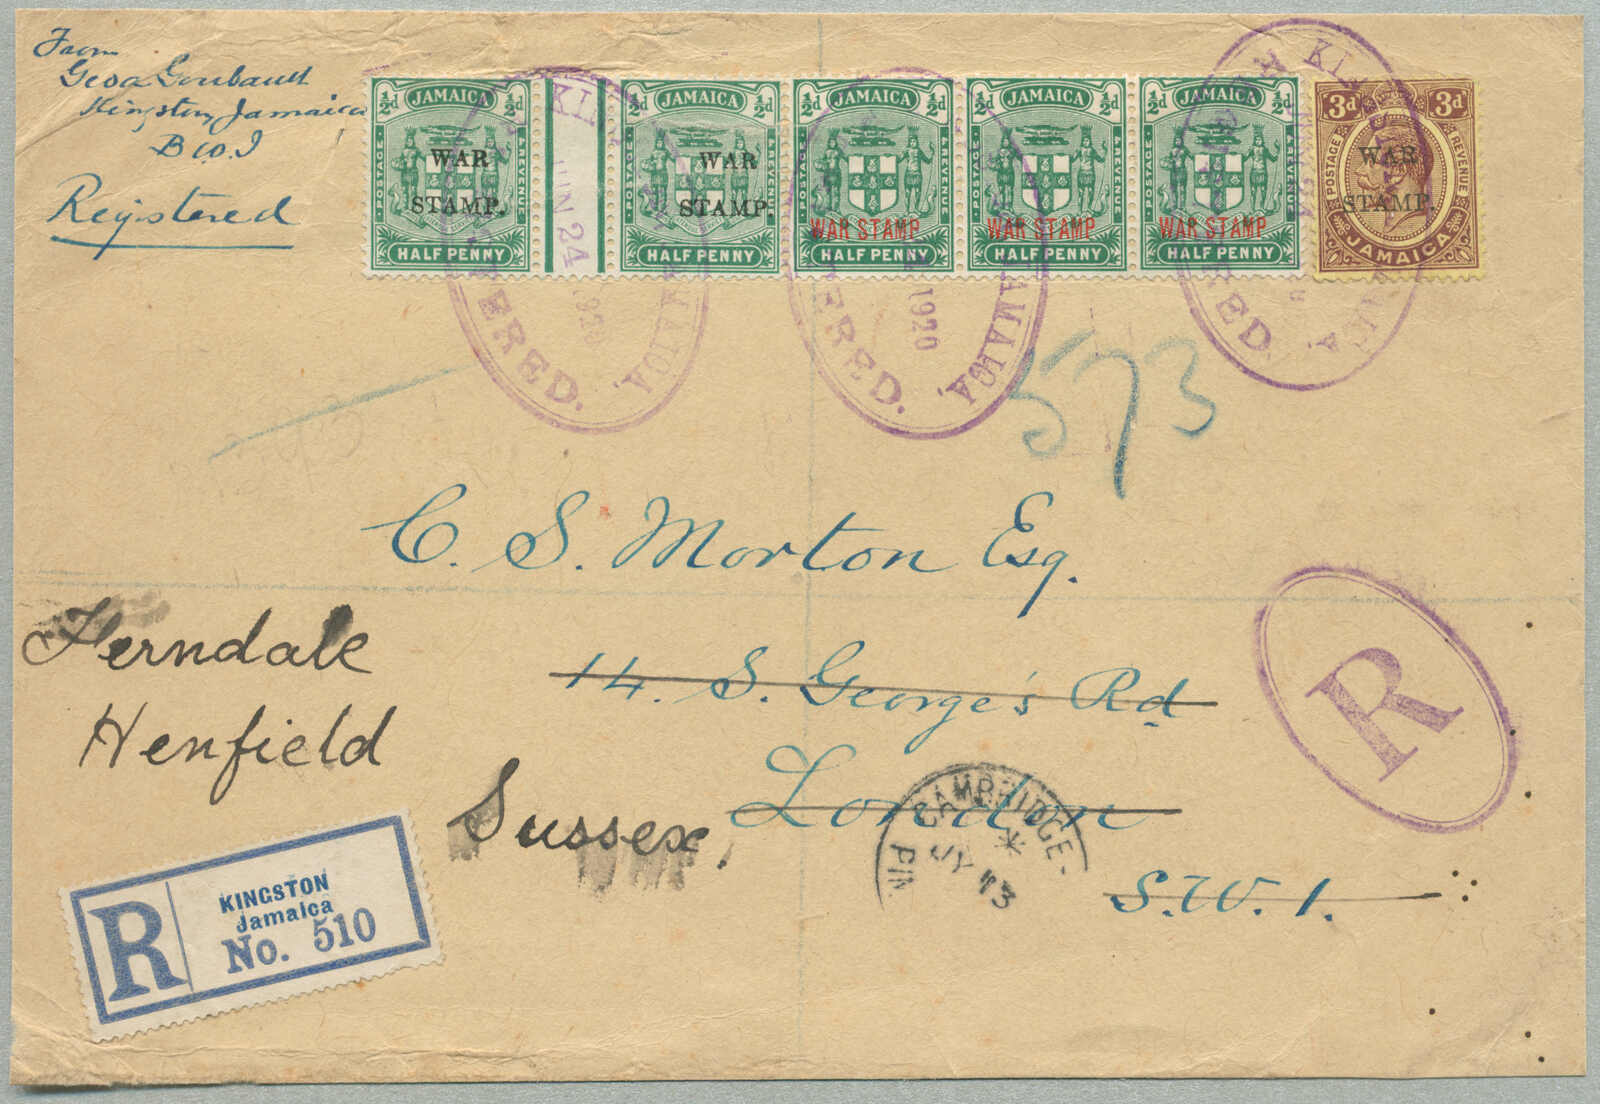 From
Geoa Goubault
Kingston, Jamaica
B W. I
Registered
½d JAMAICA ½d
POSTAGE & REVENUE
WAR
STAMP.
HALF PENNY
½d JAMAICA ½d
POSTAGE & REVENUE
WAR
STAMP.
HALF PENNY
½d JAMAICA ½d
POSTAGE & REVENUE
WAR STAMP
HALF PENNY
½d JAMAICA ½d
POSTAGE & REVENUE
WAR STAMP
HALF PENNY
½d JAMAICA ½d
POSTAGE & REVENUE
WAR STAMP
HALF PENNY
3d 3d
POSTAGE REVENUE
WAR
STAMP.
JAMAICA
JUN 24 1920
JAMAICA.
1920
JAMAICA.
573
C. S. Morton Esq.
14. S. George's Rd
London
S.W. 1.
Ferndale
Henfield
Sussex.
CAMBRIDGE
JY 13
R
R
KINGSTON
Jamaica
No. 510